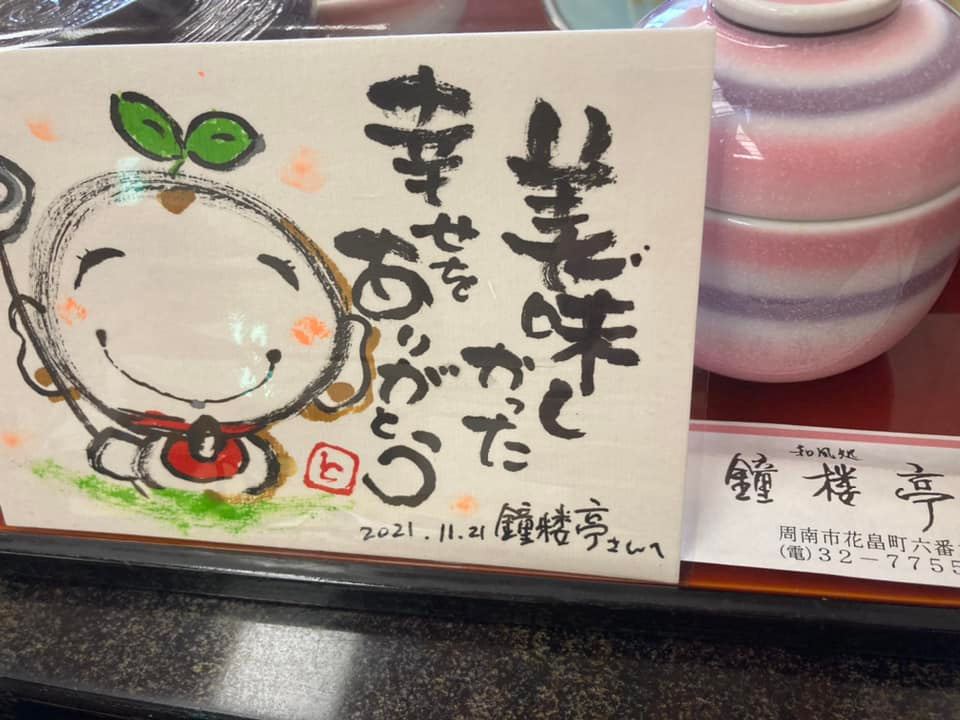 美味し
かった
幸せを
ありがとう
と
2021.11.21 鐘楼亭さんへ
和風処
鐘楼亭
周南市花畠町六番
(電)32-7755